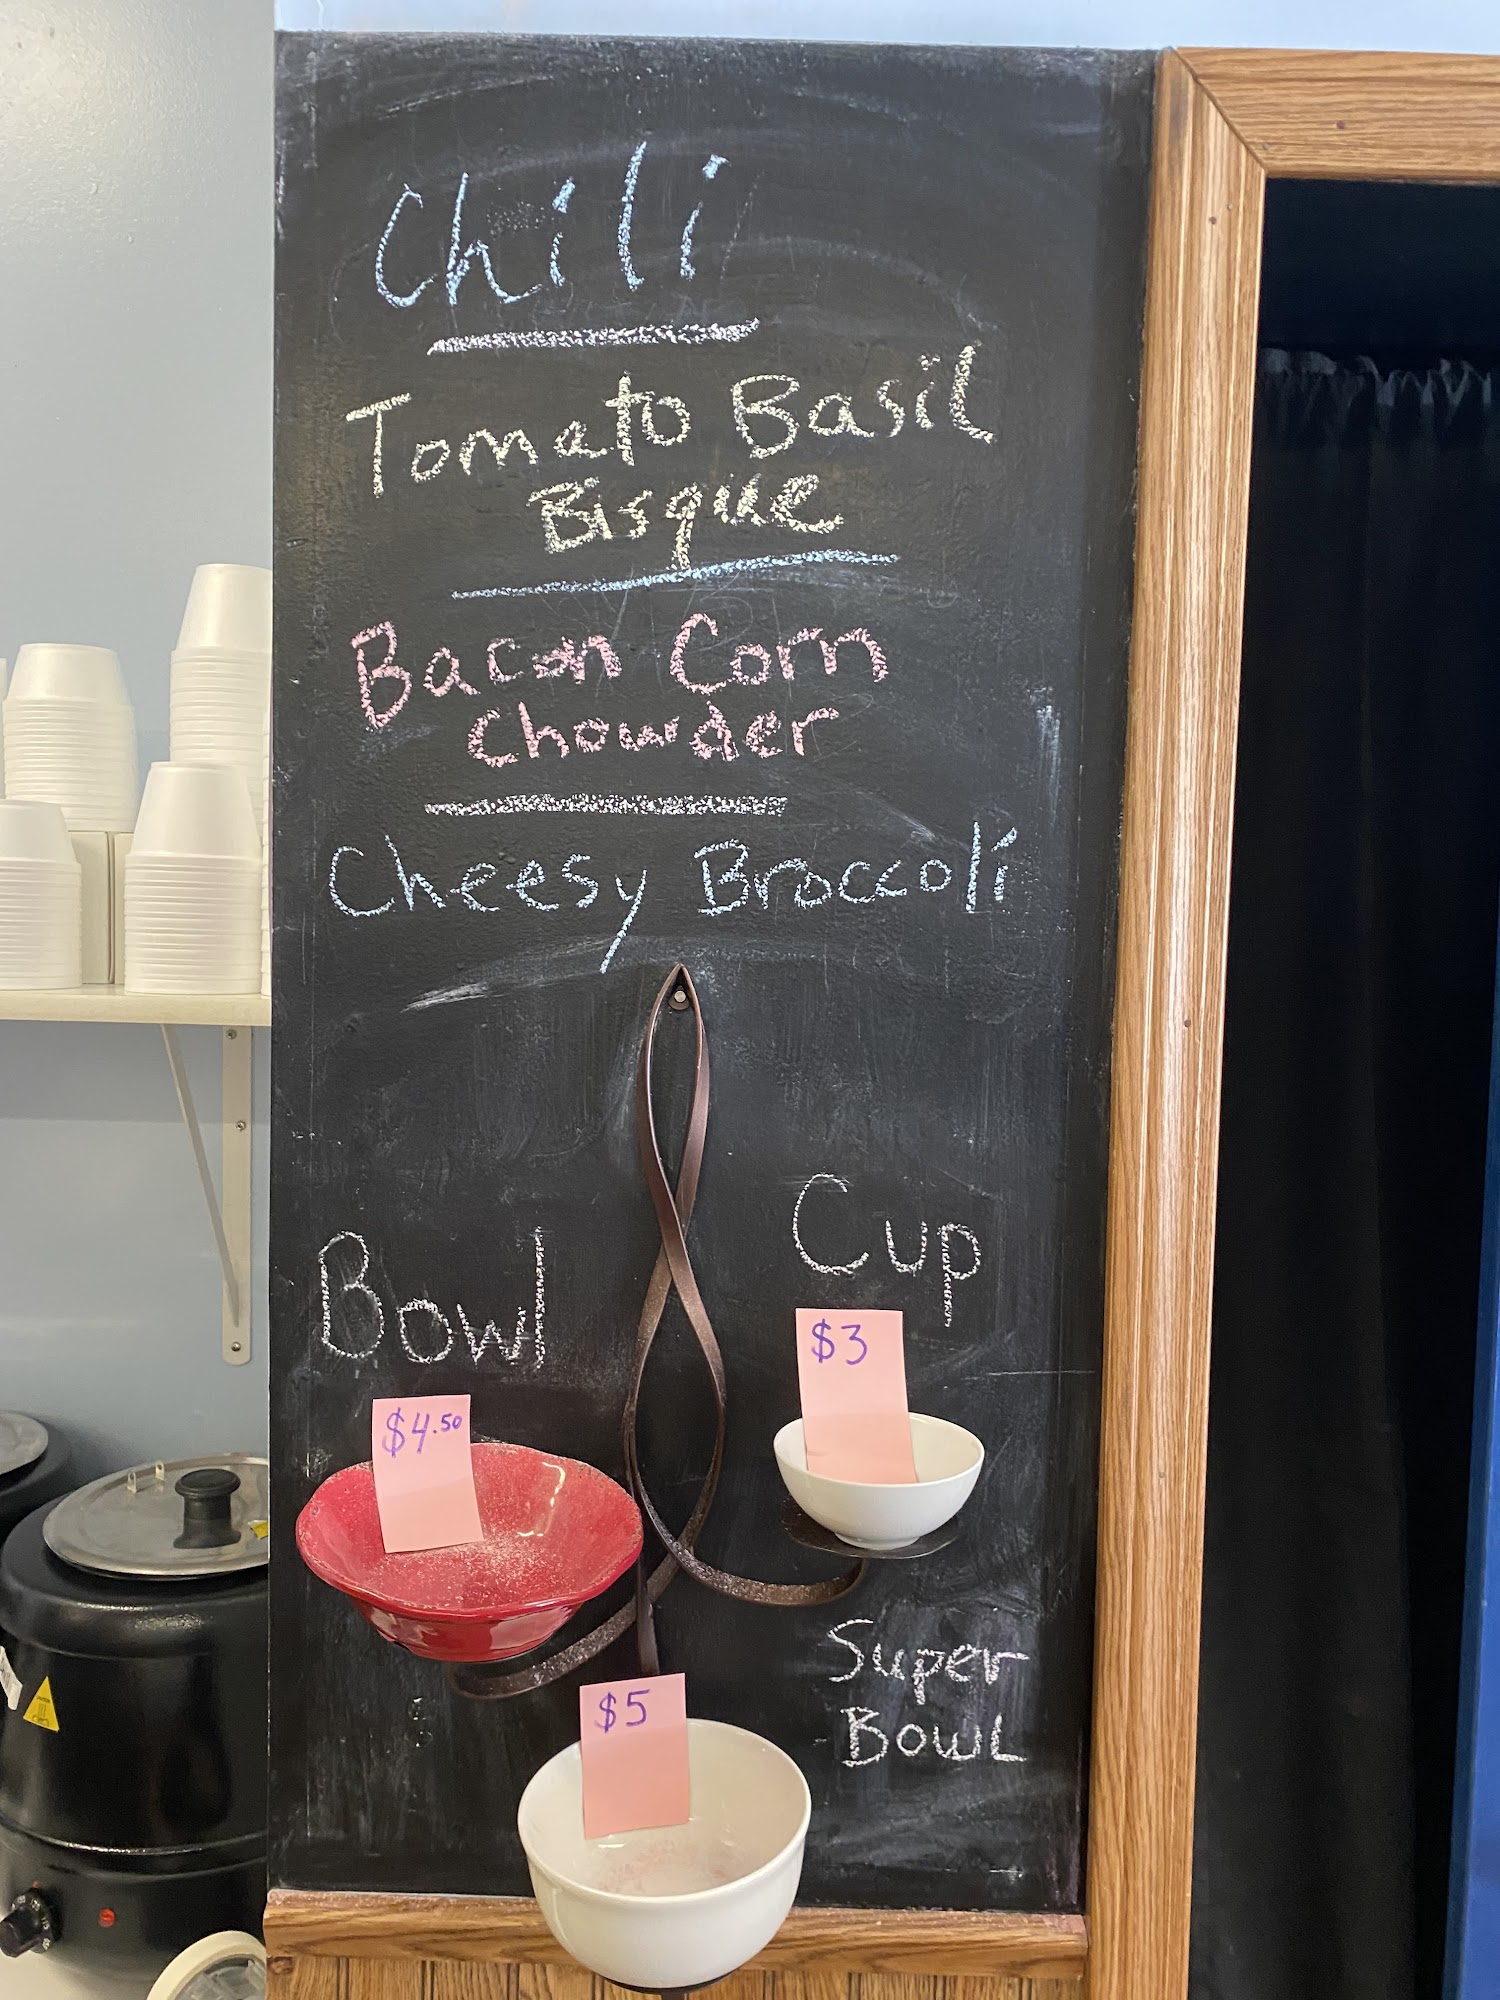 Chili
Tomato Basil
Bisque
Bacon Corn
Chowder
Cheesy Broccoli
Bowl
Cup
$3
$4.50
Super
Bowl
$5